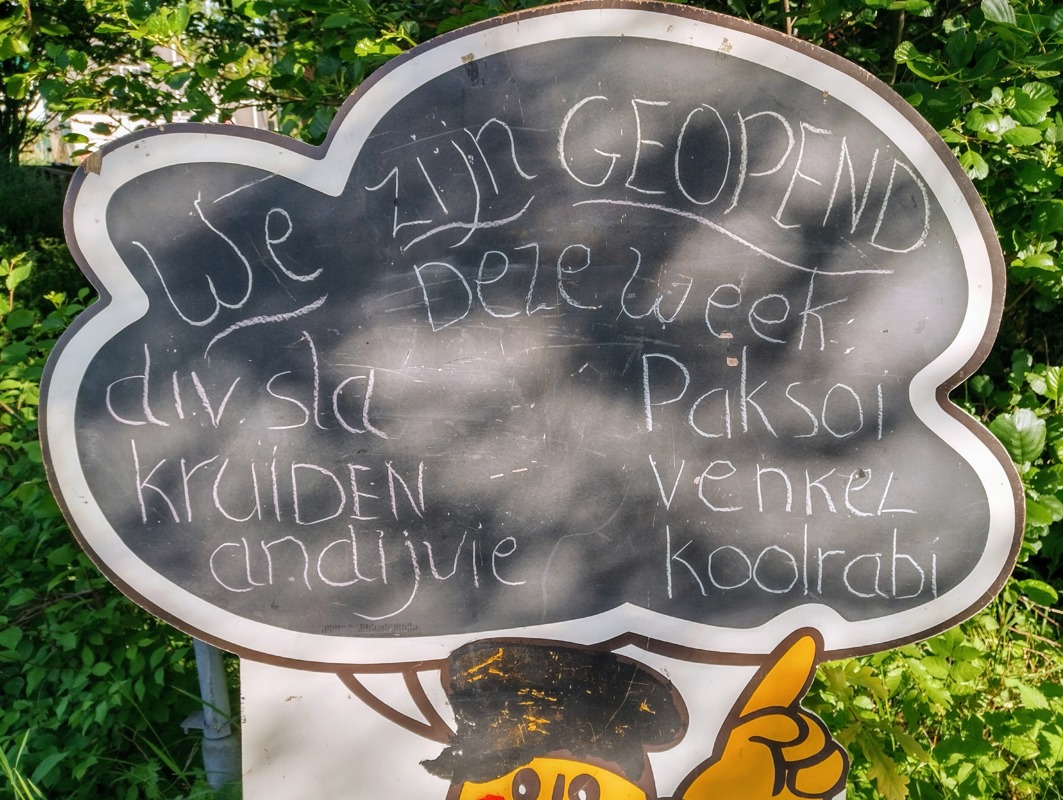 We zijn GEOPEND
Deze week
div sla
kruiDEN
andijvie
Paksoi
venkel
koolrabi